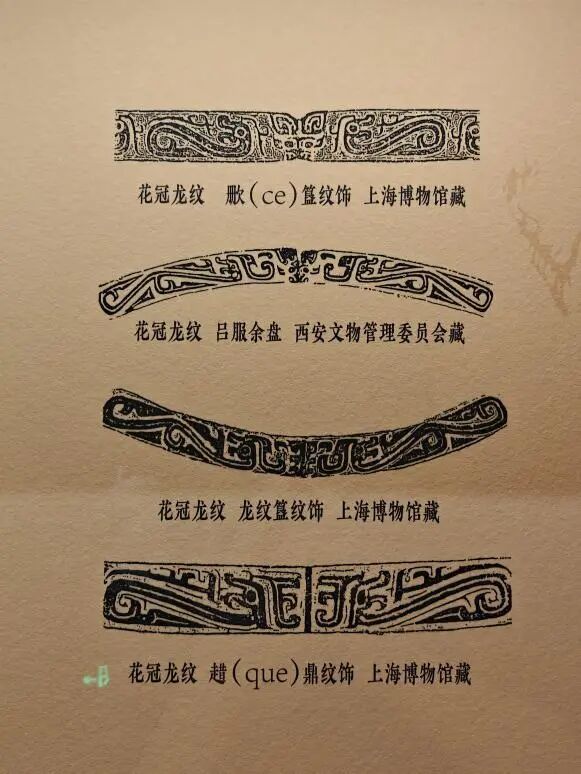 花冠龙纹 (ce)簋纹饰 上海博物馆藏
花冠龙纹 吕服余盘 西安文物管理委员会藏
花冠龙纹 龙纹簋纹饰 上海博物馆藏
花冠龙纹 趞(que)鼎纹饰 上海博物馆藏